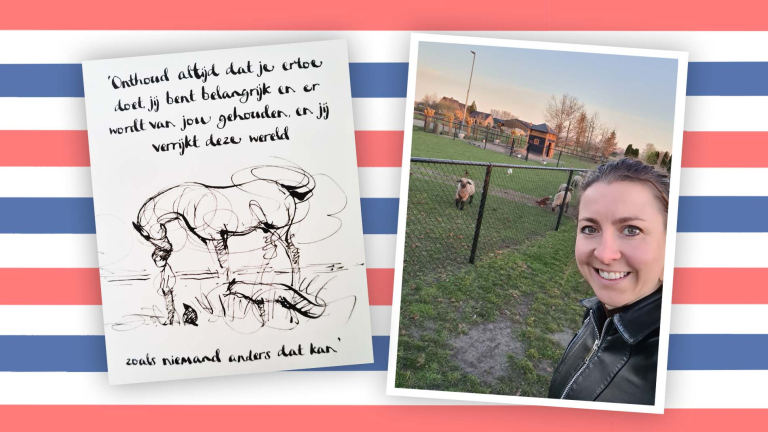 'Onthoud altijd dat je ertoe
doet, jij bent belangrijk en er
wordt van jou gehouden, en jij
verrijkt deze wereld
zoals niemand anders dat kan'